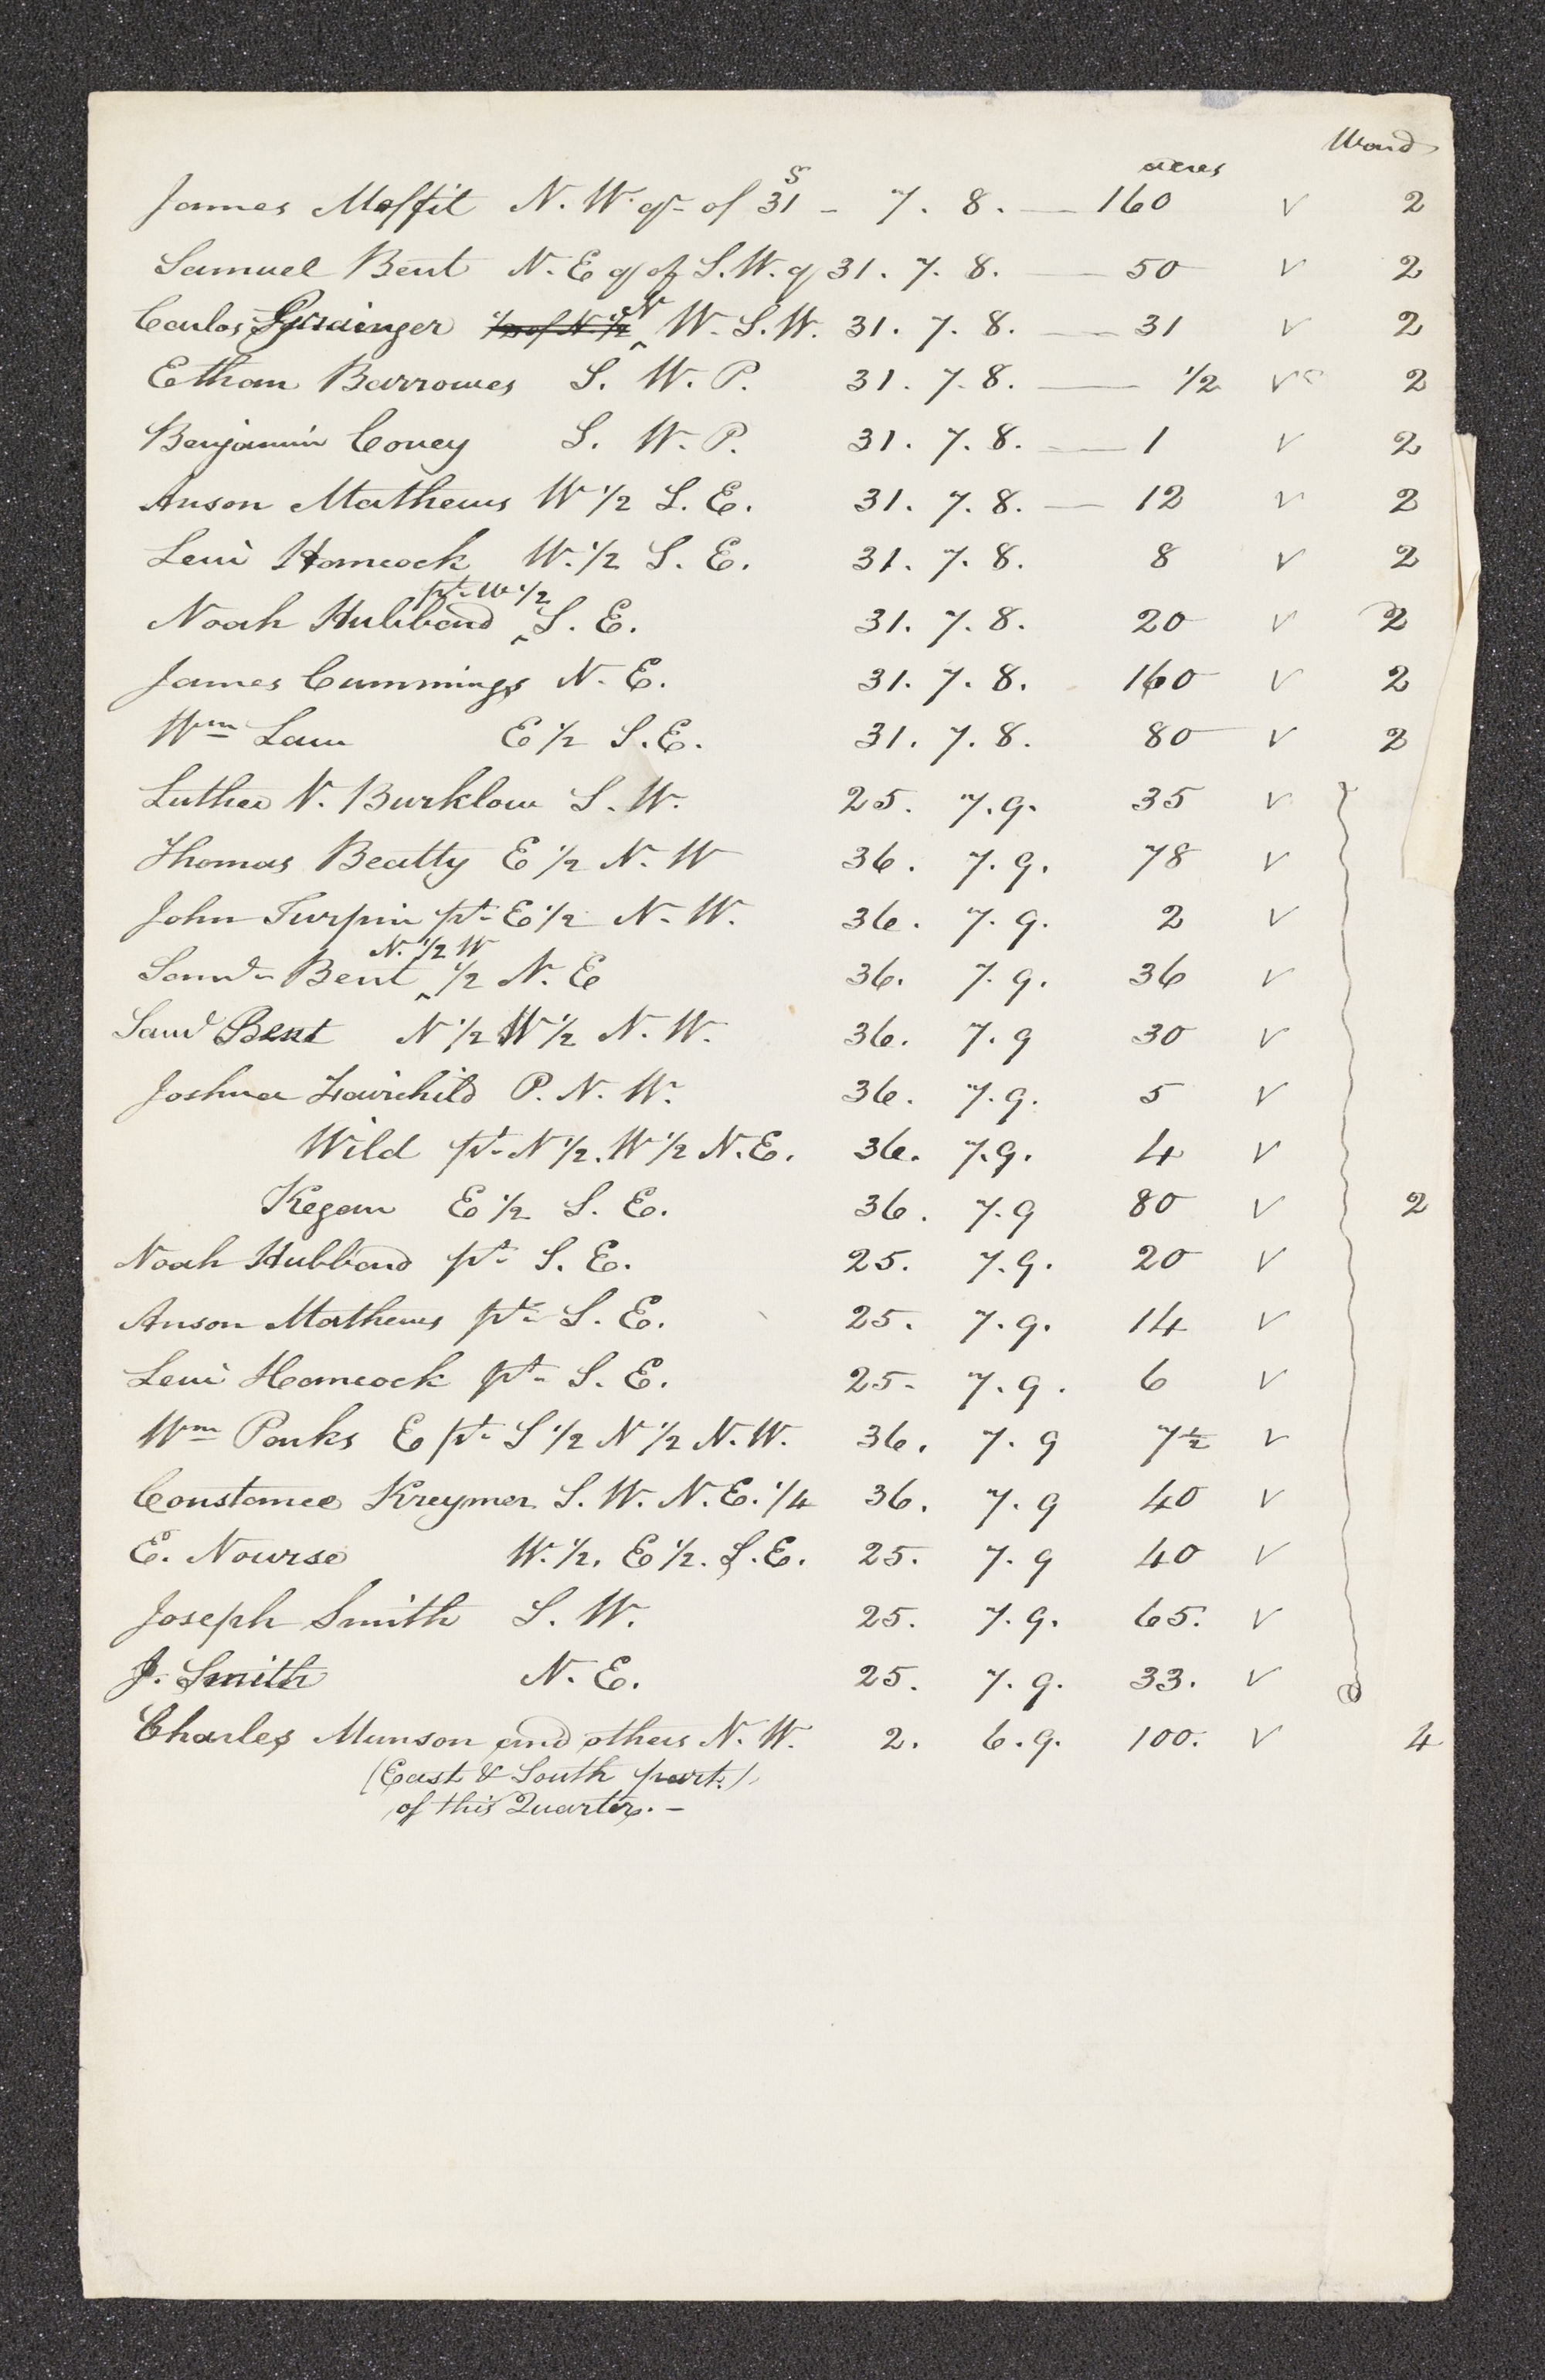 Ward
acres
James Moffit N. W. qr- of 31 S - 7. 8. — 160 v 2
Samuel Bent N. E q of S. W. q 31. 7. 8. — 50 v 2
Carlos Grainger ½ of N. ½ N W. S. W. 31. 7. 8. — 31 v 2
Ethan Barrowes S. W. P. 31. 7. 8. — 1/2 v 2
Benjamin Covey S. W. P. 31. 7. 8. — 1 v 2
Anson Mathews W 1/2 S. E. 31. 7. 8. — 12 v 2
Levi Hancock W. 1/2 S. E. 31. 7. 8. 8 v 2
pt- W 1/2
Noah Hubbard ^ S. E. 31. 7. 8. 20 v 2
James Cummings N. E. 31. 7. 8. 160 v 2
Wm Law E 1/2 S. E. 31. 7. 8. 80 v 2
Luther N. Burklow S. W. 25. 7. 9. 35 v
Thomas Beatty E 1/2 N. W 36. 7. 9. 78 v
John Turpin pt- E 1/2 N. W. 36. 7. 9. 2 v
N. 1/2 W
Saml- Bent ^ 1/2 N. E 36. 7. 9. 36 v
Saml Bent N 1/2 W 1/2 N. W. 36. 7. 9 30 v
Joshua Fairchild P. N. W. 36. 7. 9. 5 v
Wild pt- N 1/2. W 1/2 N. E. 36. 7. 9. 4 v
Kegan E 1/2 S. E. 36. 7. 9 80 v 2
Noah Hubbard pt- S. E. 25. 7. 9. 20 v
Anson Mathews pt- S. E. 25. 7. 9. 14 v
Levi Hancock pt- S. E. 25. 7. 9. 6 v
Wm Parks E pt- S 1/2 N 1/2 N. W. 36. 7. 9 7½ v
Constance Kreymer S. W. N. E. 1/4 36. 7. 9 40 v
E. Nourse W. 1/2. E 1/2. S. E. 25. 7. 9 40 v
Joseph Smith S. W. 25. 7. 9. 65. v
J. Smith N. E. 25. 7. 9. 33. v
Charles Munson and others N. W. 2. 6. 9. 100. v 4
(East & South part.)
of this Quarter. -